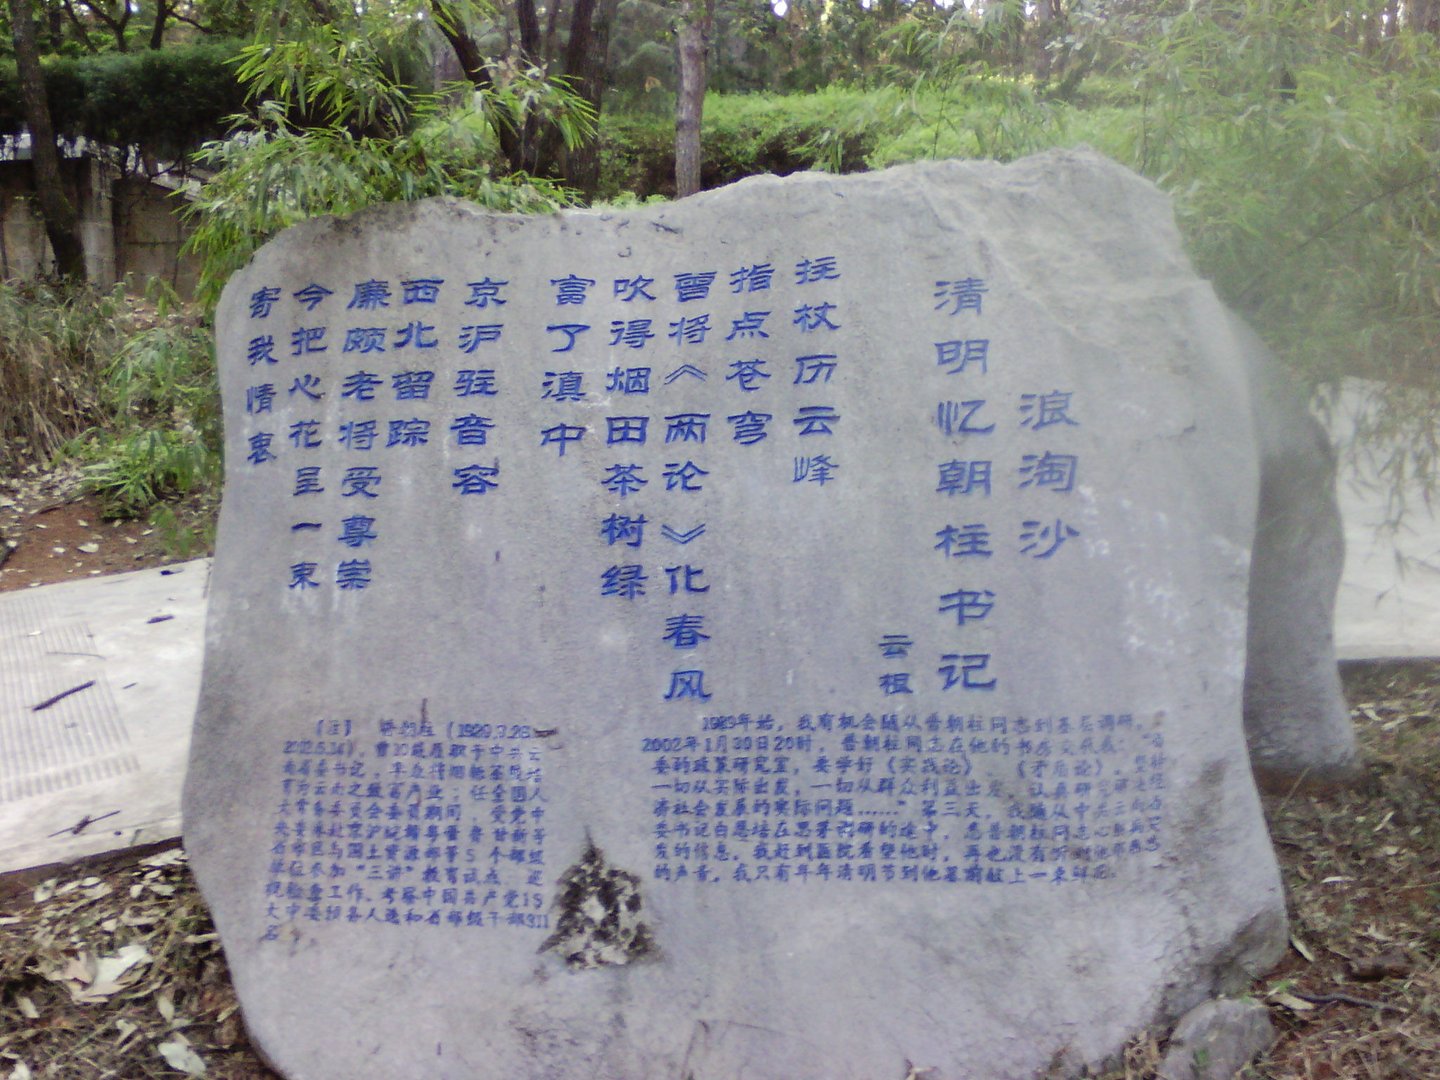 浪淘沙
清明忆朝柱书记
云根
拄杖历云峰
指点苍穹
曾将《两论》化春风
吹得烟田茶树绿
富了滇中
京沪驻音容
西北留踪
廉颇老将受尊崇
今把心花呈一束
寄我情衷
1989年始，我有机会随从普朝柱同志到基层调研。
2002年1月30日20时，普朝柱同志在他的书房交代我：“
委的政策研究室，要学好《实践论》、《矛盾论》，坚持
一切从实际出发，一切从群众利益出发，认真研究解决经
济社会发展的实际问题……”第三天，我随从中共云南省
委书记白恩培在思茅调研的途中，悉普朝柱同志心脏病突
发的信息，我赶到医院看望他时，再也没有听到他那熟悉
的声音，我只有年年清明节到他墓前献上一束鲜花。
〔注〕 普朝柱（1929.3.26—
2002.5.14），曾10载履职于中共云
南省委书记，率众将烟
育为云南之最富产业；任全国人
大常务委员会委员期间，受党中
央委派赴京沪
省市区与国土资源部等5个部级
单位参加“三讲”教育试点、巡
视检查工作，考察中国共产党15
大中委预备人选和省部级干部311
名。